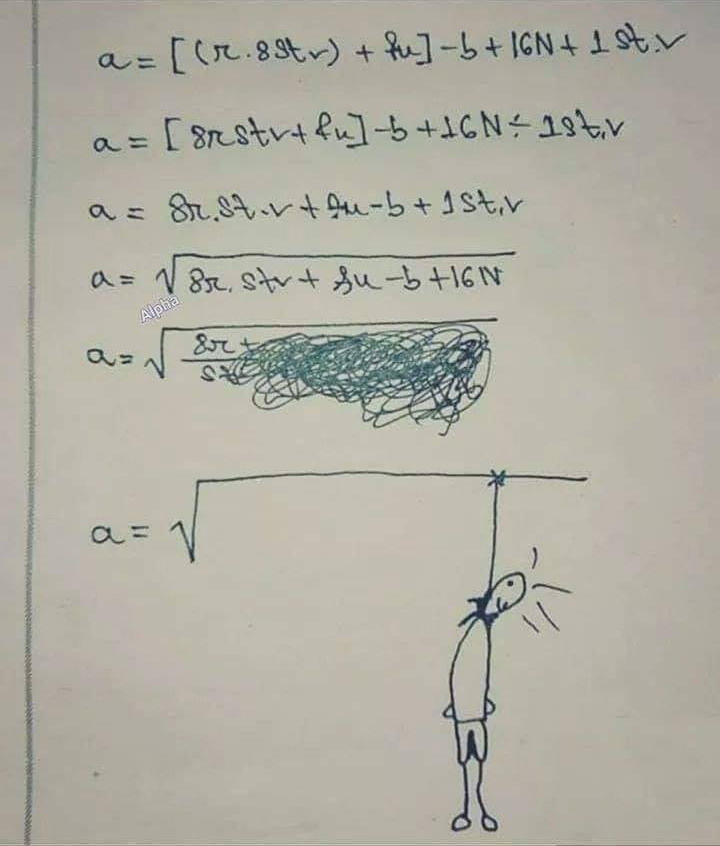 a = [(r.8Stv) + fu] - b + 16N + 1 st.v
a = [8rstv + fu] - b + 16N ÷ 1st,v
a = 8r.St.v + fu - b + 1St,v
a = √8r.stv + fu - b + 16N
Alpha
a = √8r +
a = √